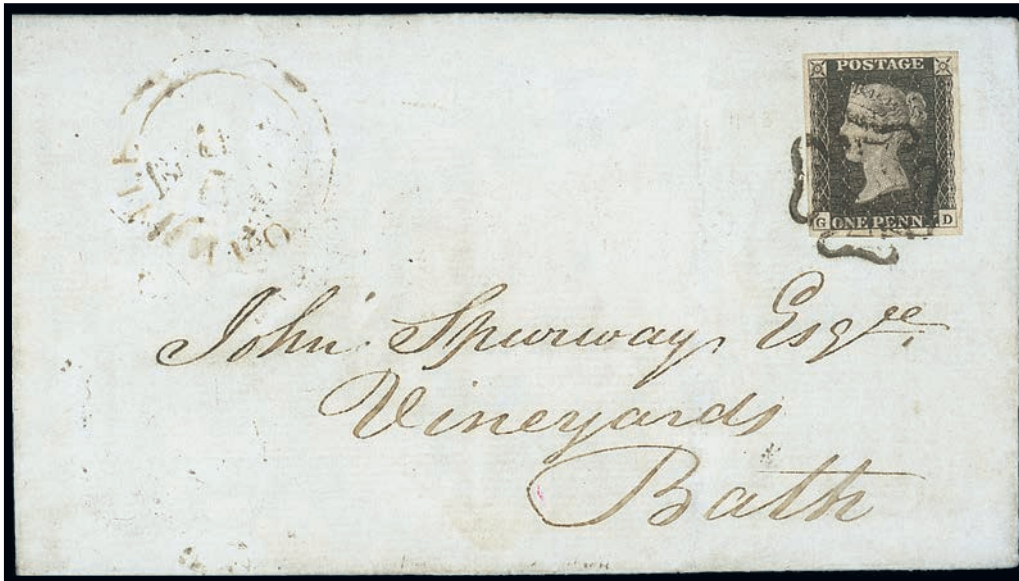 POSTAGE
G ONE PENNY D
John Spurway Esqre.
Vineyards
Bath